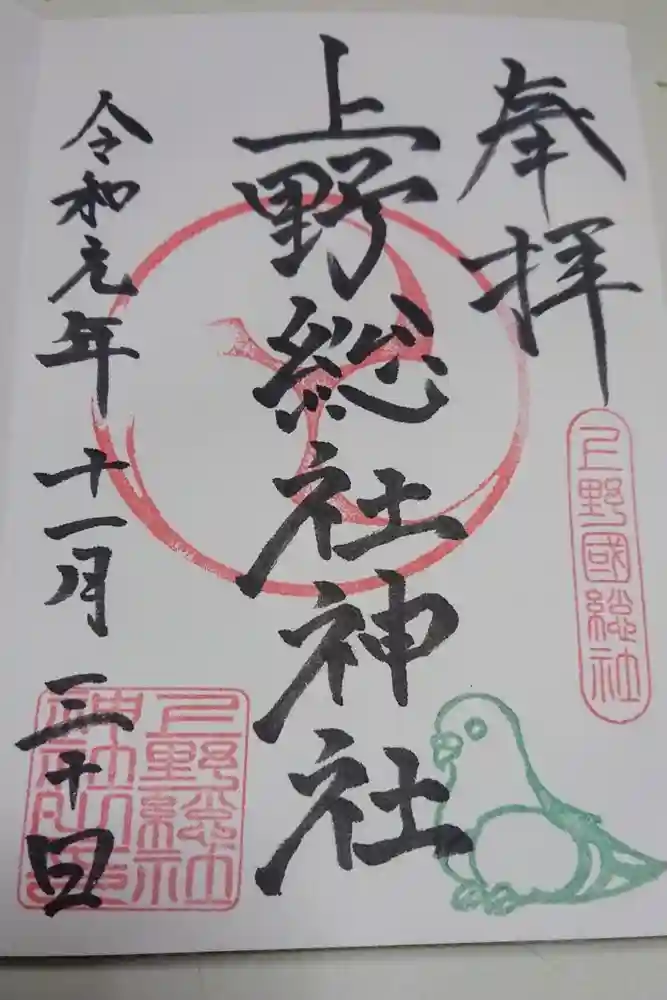 奉拝
上野國総社
上野総社神社
令和元年十一月三十日
上野総社